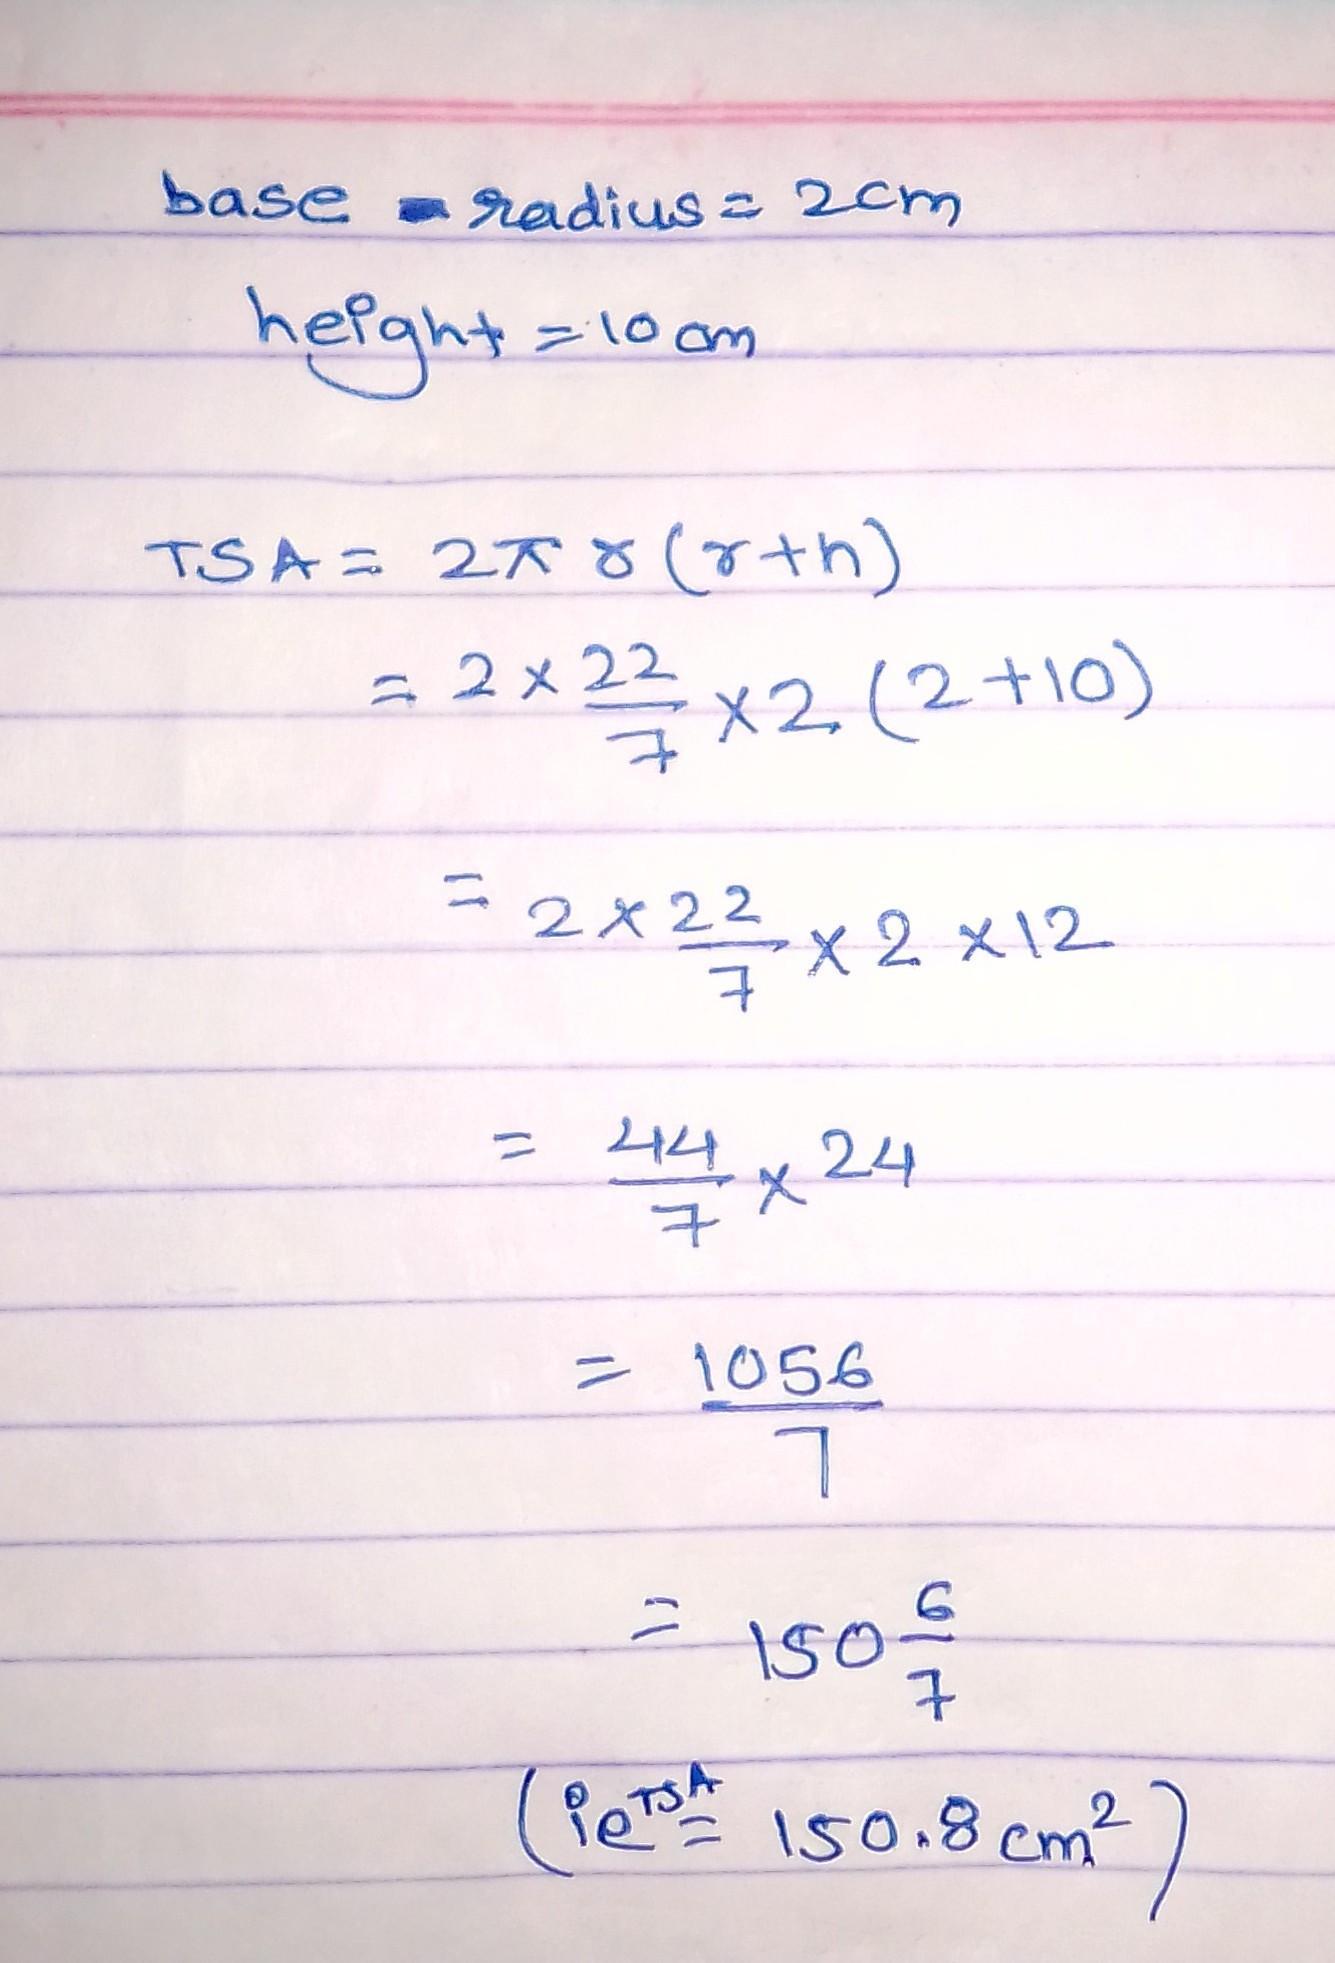 base radius = 2cm
height = 10 cm
TSA = 2π r (r+h)
= 2 × 22/7 × 2 (2+10)
= 2 × 22/7 × 2 × 12
= 44/7 × 24
= 1056/7
= 150 6/7
(ie TSA = 150.8 cm²)